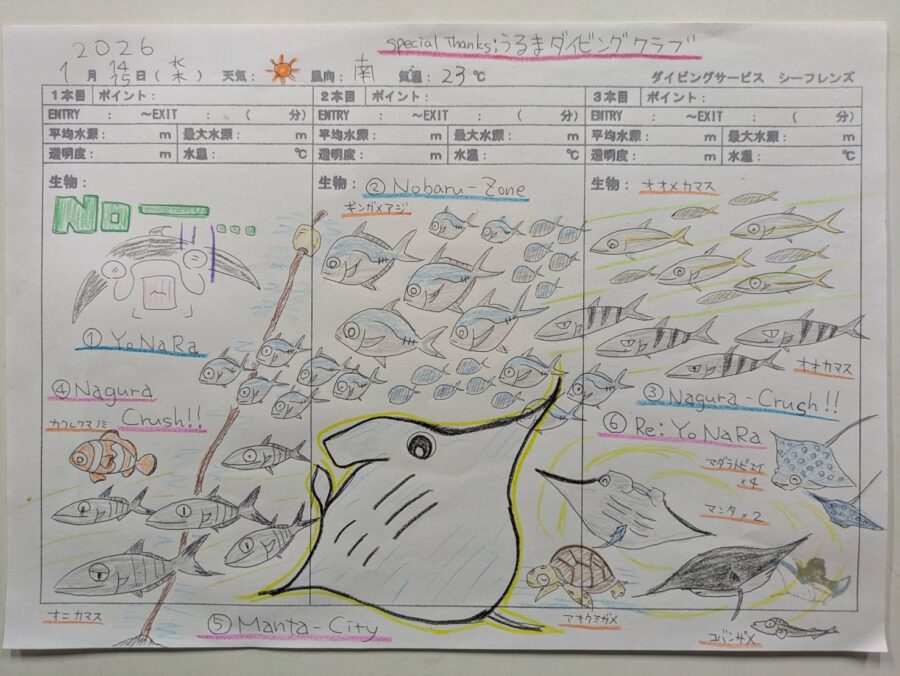 2026
special Thanks:うるまダイビングクラブ
1月 14 15日(水 木) 天気: 風向:南 気温:23℃ ダイビングサービス シーフレンズ
1本目 ポイント: 2本目 ポイント: 3本目 ポイント:
ENTRY : ～EXIT : ( 分) ENTRY : ～EXIT : ( 分) ENTRY : ～EXIT : ( 分)
平均水深: m 最大水深: m 平均水深: m 最大水深: m 平均水深: m 最大水深: m
透明度: m 水温: ℃ 透明度: m 水温: ℃ 透明度: m 水温: ℃
生物:
No ー...
① YoNaRa
④ Nagura
Crush!!
カクレクマノミ
オニカマス
生物: ② Nobaru-Zone
ギンガメアジ
⑤ Manta-City
生物: オオメカマス
オオカマス
③ Nagura-Crush!!
⑥ Re:YoNaRa
マダラトビエイ
×4
マンタ×2
アオウミガメ
コバンザメ